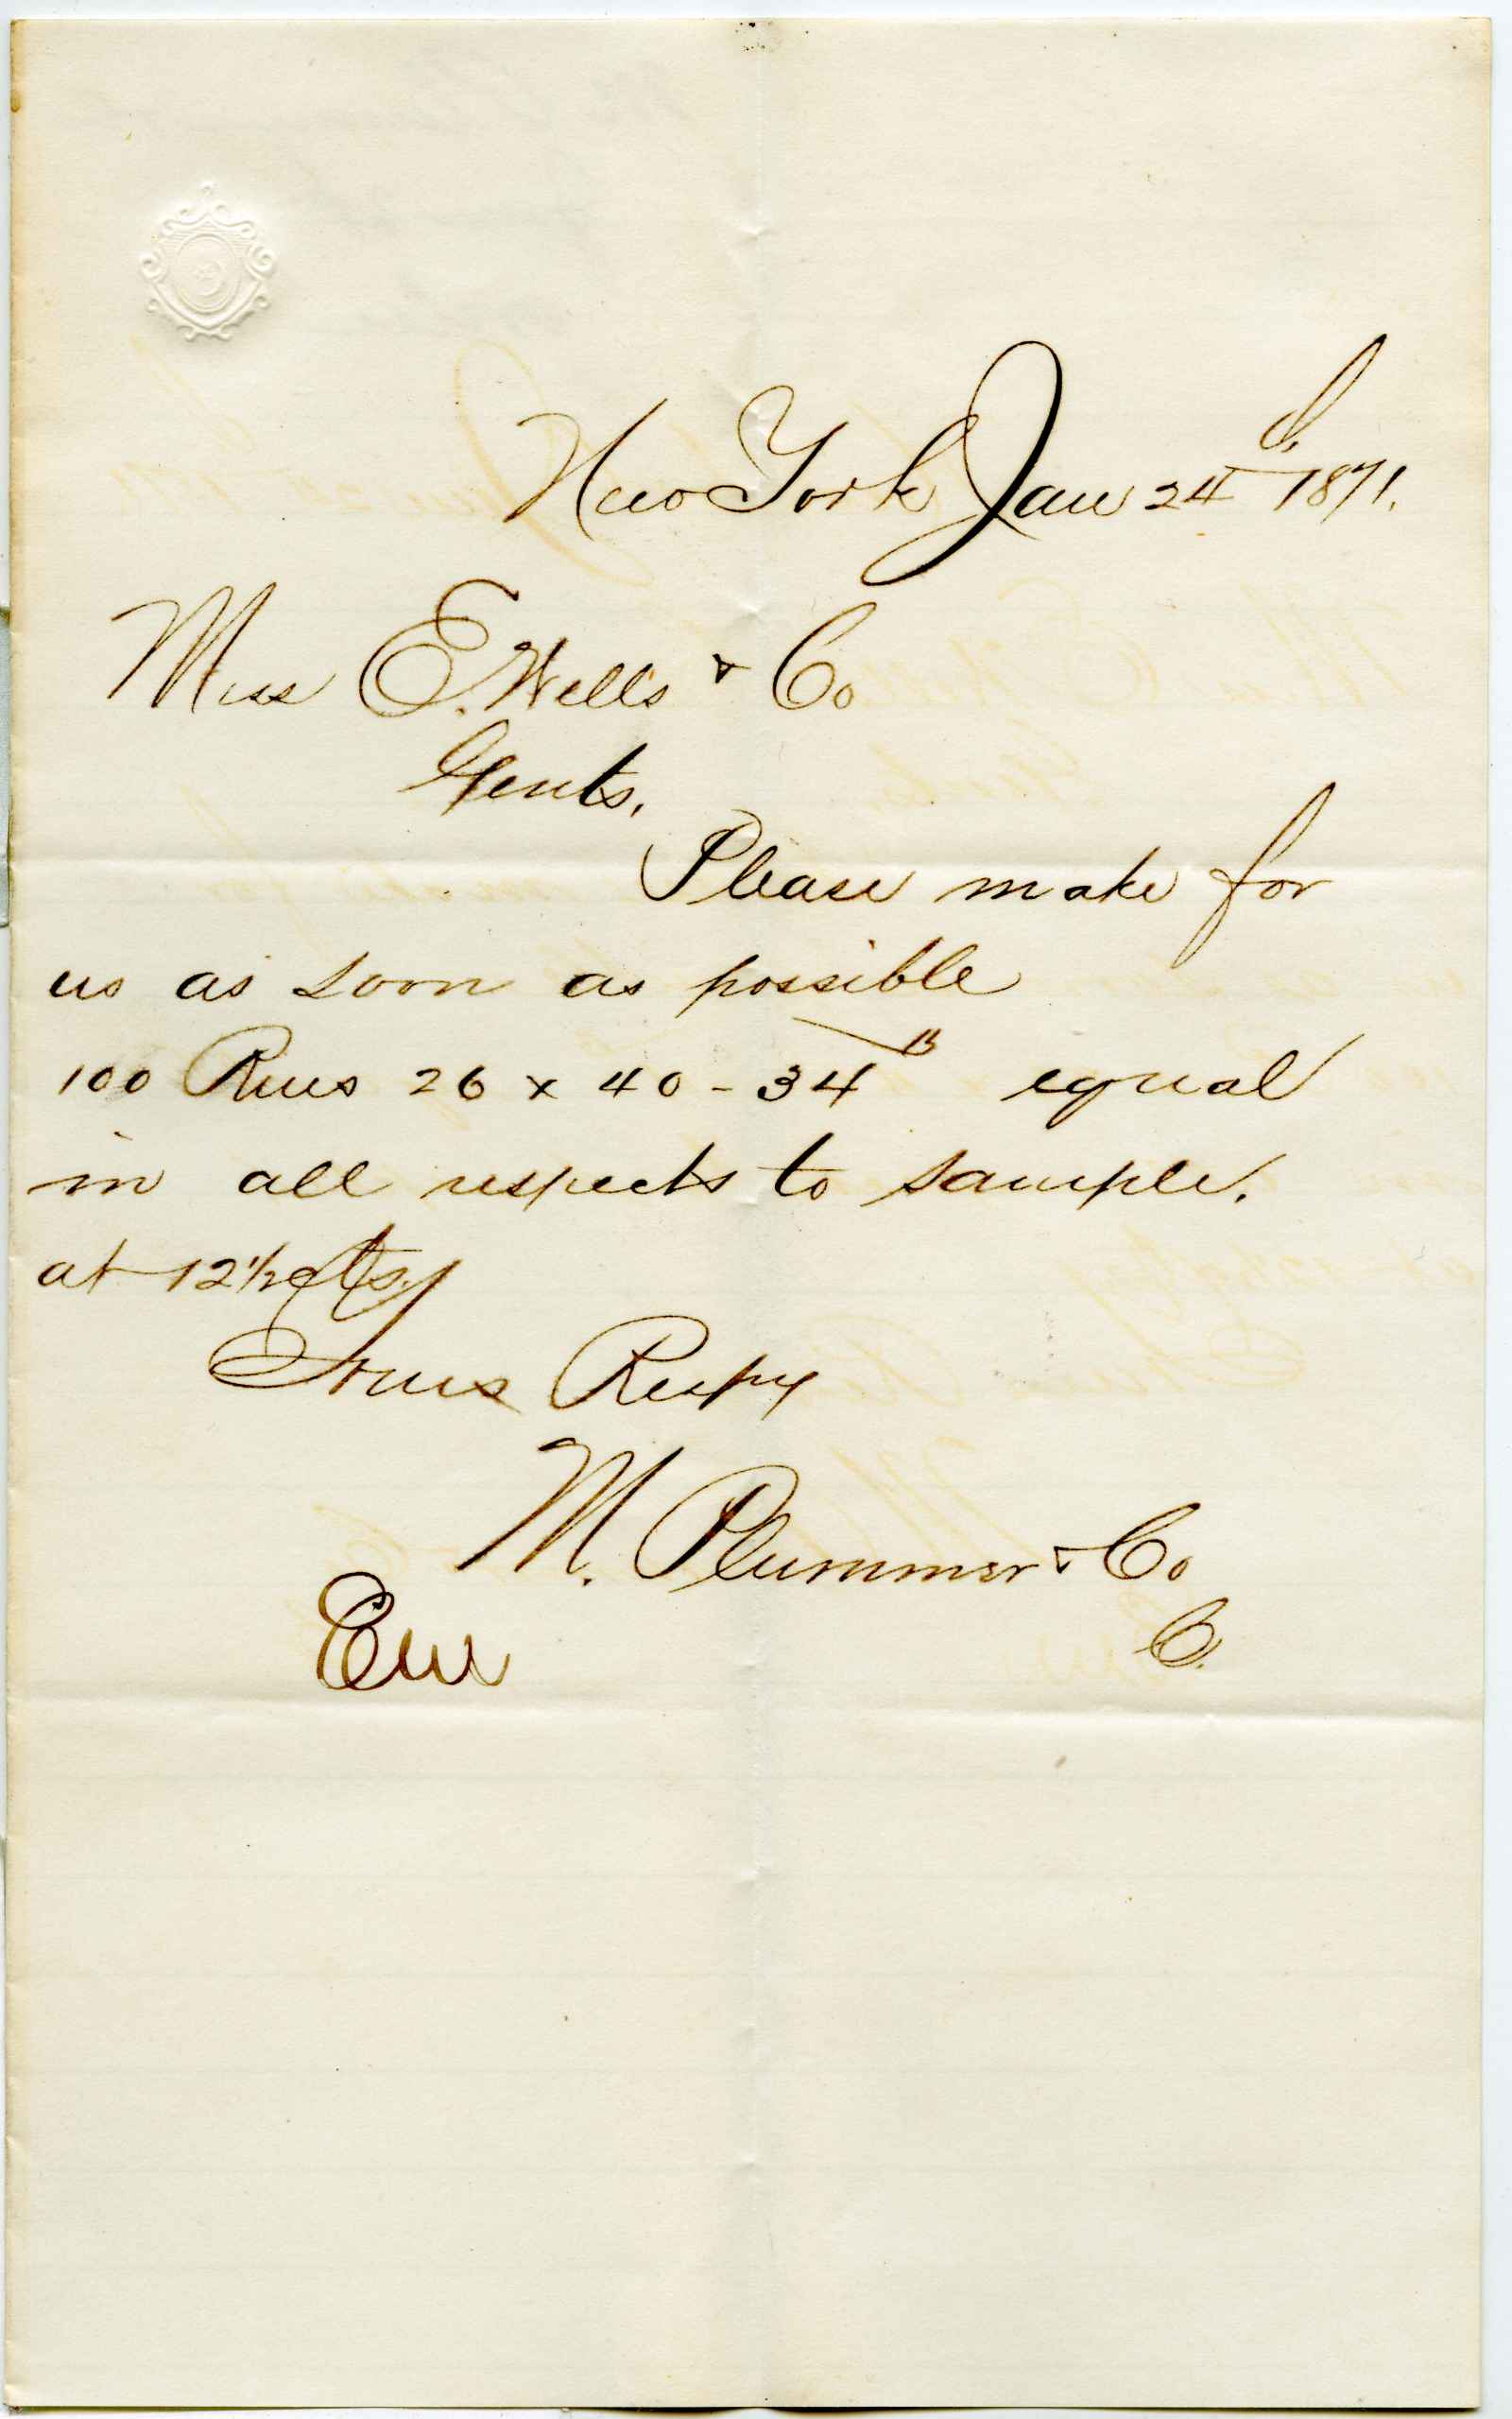 New York Jan 24th 1871.
Mess E. Wells & Co
Gents.
Please make for
us as soon as possible
100 Rms 26 x 40 - 34 lb equal
in all respects to sample.
at 12½ cts.
Yours Respy
M. Plummer & Co
C.